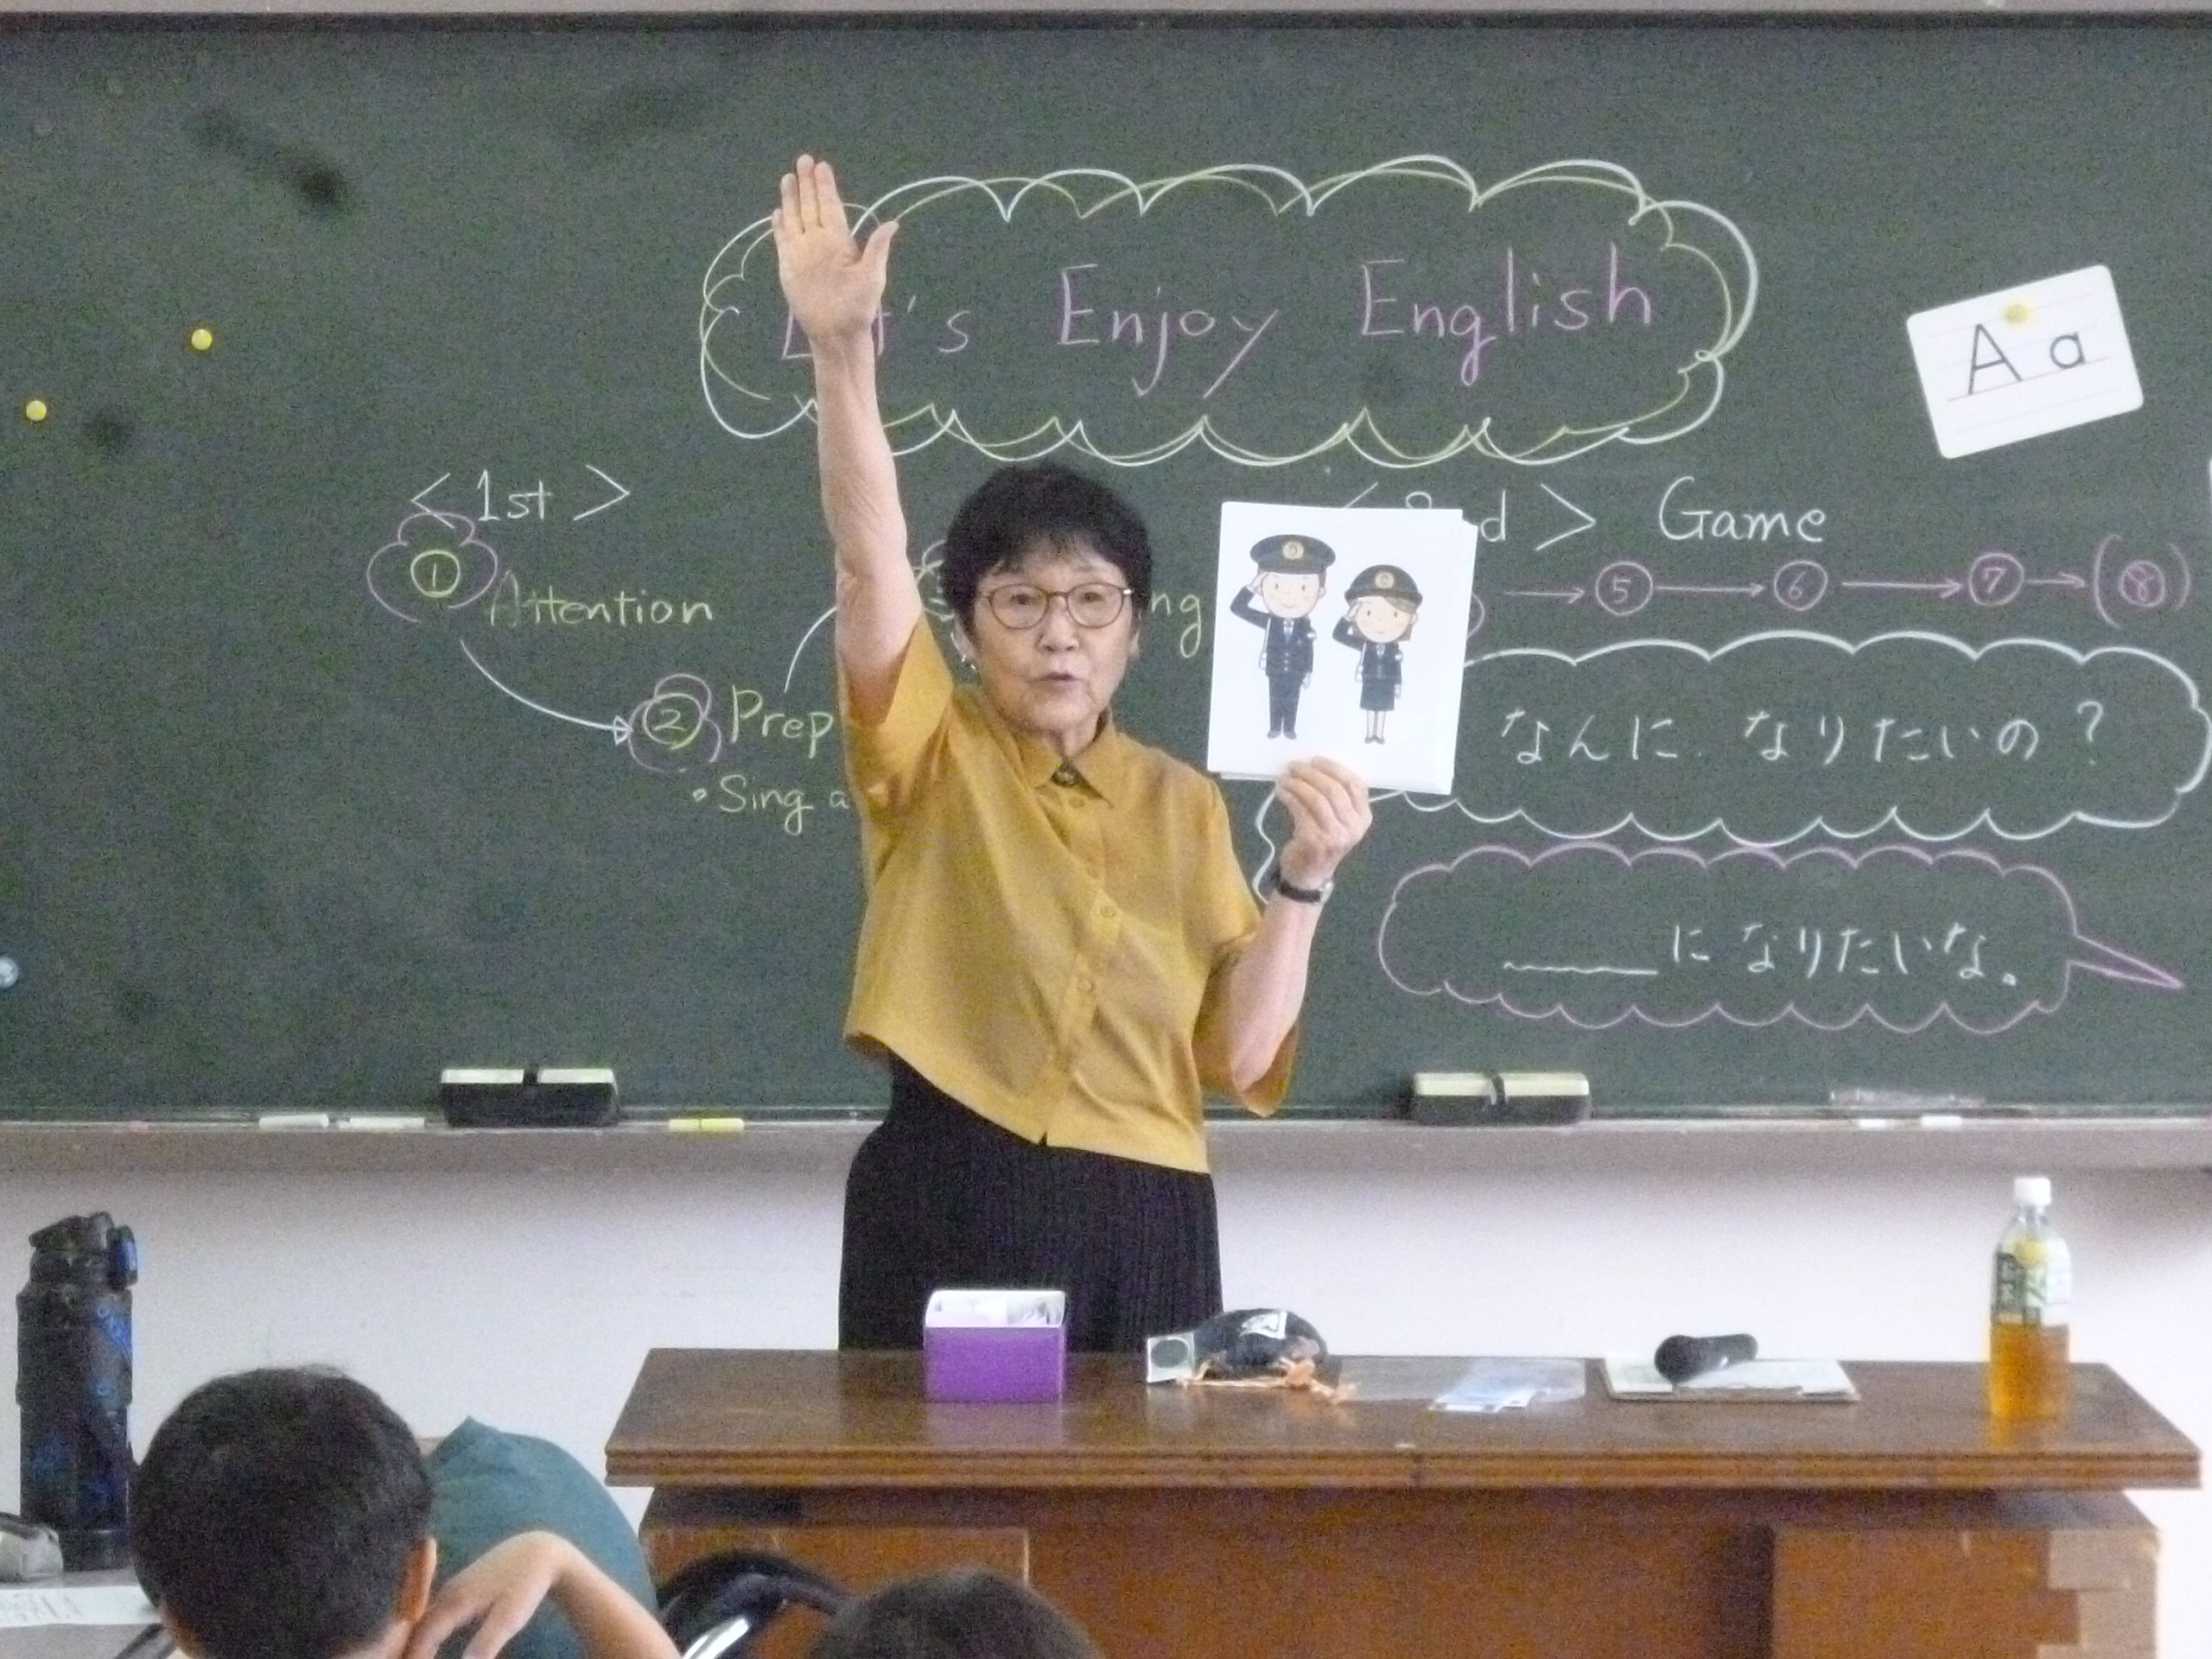 's Enjoy English
A a
<1st>
① Attention
② Prep
・Sing a
ng
d> Game
→⑤→⑥→⑦→(⑧)
なんに なりたいの?
___になりたいな。